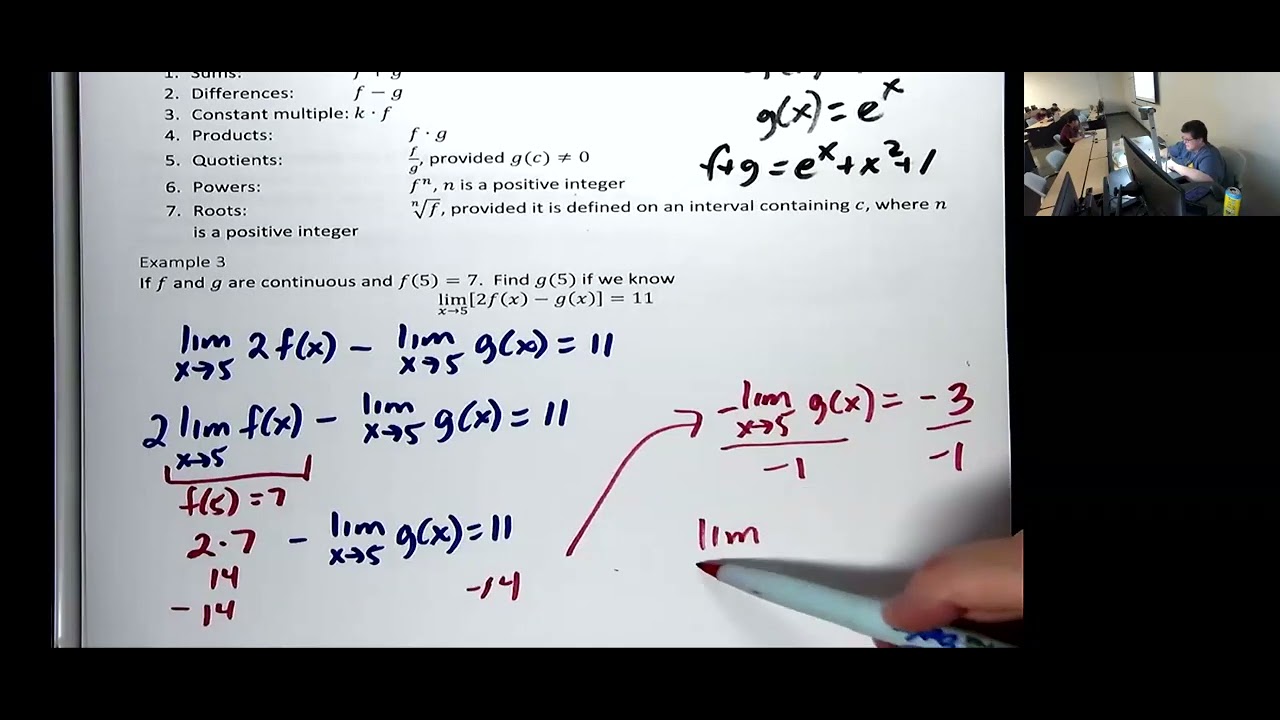 1. Sums: f + g
2. Differences: f − g
3. Constant multiple: k · f
4. Products: f · g
5. Quotients: f/g, provided g(c) ≠ 0
6. Powers: fⁿ, n is a positive integer
7. Roots: ⁿ√f, provided it is defined on an interval containing c, where n
is a positive integer
g(x) = eˣ
f+g = eˣ+x²+1
Example 3
If f and g are continuous and f(5) = 7. Find g(5) if we know
lim x→5 [2f(x) − g(x)] = 11
lim x→5 2f(x) − lim x→5 g(x) = 11
2 lim x→5 f(x) − lim x→5 g(x) = 11
f(5) = 7
2·7 − lim x→5 g(x) = 11
14
−14 −14
−lim x→5 g(x) = −3
−1 −1
lim